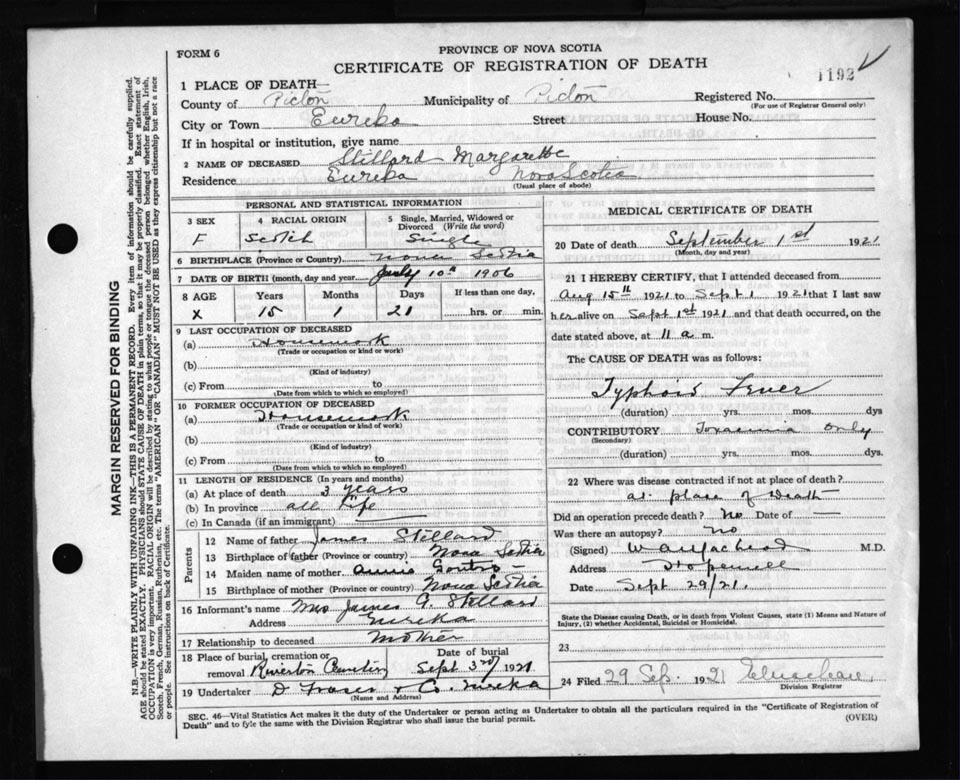 PROVINCE OF NOVA SCOTIA
FORM 6
CERTIFICATE OF REGISTRATION OF DEATH
1192
1 PLACE OF DEATH—
County of Pictou Municipality of Pictou Registered No.
(For use of Registrar General only)
City or Town Eureka Street House No.
If in hospital or institution, give name
2 NAME OF DECEASED Stillard Margarette
Residence Eureka Nova Scotia
(Usual place of abode)
PERSONAL AND STATISTICAL INFORMATION
3 SEX 4 RACIAL ORIGIN 5 Single, Married, Widowed or Divorced (Write the word)
F Scotch Single
6 BIRTHPLACE (Province or Country) Nova Scotia
7 DATE OF BIRTH (month, day and year) July 10th 1906
8 AGE Years Months Days If less than one day,
X 15 1 21 hrs. or min.
9 LAST OCCUPATION OF DECEASED
(a) Housework
(Trade or occupation or kind or work)
(b)
(Kind of industry)
(c) From to
(Date from which to which so employed)
10 FORMER OCCUPATION OF DECEASED
(a) Housework
(Trade or occupation or kind of work)
(b)
(Kind of industry)
(c) From to
(Date from which to which so employed)
11 LENGTH OF RESIDENCE (In years and months)
(a) At place of death 3 years
(b) In province all life
(c) In Canada (if an immigrant)
Parents
12 Name of father James Stillard
13 Birthplace of father (Province or country) Nova Scotia
14 Maiden name of mother Annie
15 Birthplace of mother (Province or country) Nova Scotia
16 Informant's name Mrs James G. Stillard
Address Eureka
17 Relationship to deceased Mother
18 Place of burial, cremation or removal Riverton Cemetery Date of burial Sept 3rd 1921
19 Undertaker D Fraser & Co. Eureka
(Name and Address)
MEDICAL CERTIFICATE OF DEATH
20 Date of death September 1st 1921
(Month, day and year)
21 I HEREBY CERTIFY, that I attended deceased from
Aug 15th 1921 to Sept 1 1921 that I last saw
her alive on Sept 1st 1921 and that death occurred, on the
date stated above, at 11 a m.
The CAUSE OF DEATH was as follows:
Typhoid Fever
(duration) yrs. mos. dys
CONTRIBUTORY Toxaemia only
(Secondary)
(duration) yrs. mos. dys.
22 Where was disease contracted if not at place of death?
at place of death
Did an operation precede death? No Date of —
Was there an autopsy? no
(Signed) M.D.
Address Hopewell
Date Sept 29/21.
State the Disease causing Death, or in death from Violent Causes, state (1) Means and Nature of Injury, (2) whether Accidental, Suicidal or Homicidal.
23
24 Filed 29 Sep. 1921
Division Registrar
SEC. 46—Vital Statistics Act makes it the duty of the Undertaker or person acting as Undertaker to obtain all the particulars required in the "Certificate of Registration of
Death" and to fyle the same with the Division Registrar who shall issue the burial permit.
(OVER)
MARGIN RESERVED FOR BINDING
N.B.—WRITE PLAINLY WITH UNFADING INK—THIS IS A PERMANENT RECORD. Every item of information should be carefully supplied.
AGE should be stated EXACTLY. PHYSICIANS should STATE CAUSE OF DEATH in plain terms, so that it may be properly classified. Exact statement of
OCCUPATION is very important. RACIAL ORIGIN will be described by stating to what people or tongue the deceased person belonged whether English, Irish,
Scotch, French, German, Russian, Ruthenian, etc. The terms "AMERICAN" OR "CANADIAN" MUST NOT BE USED as they express citizenship but not a race
or people. See instructions on back of Certificate.